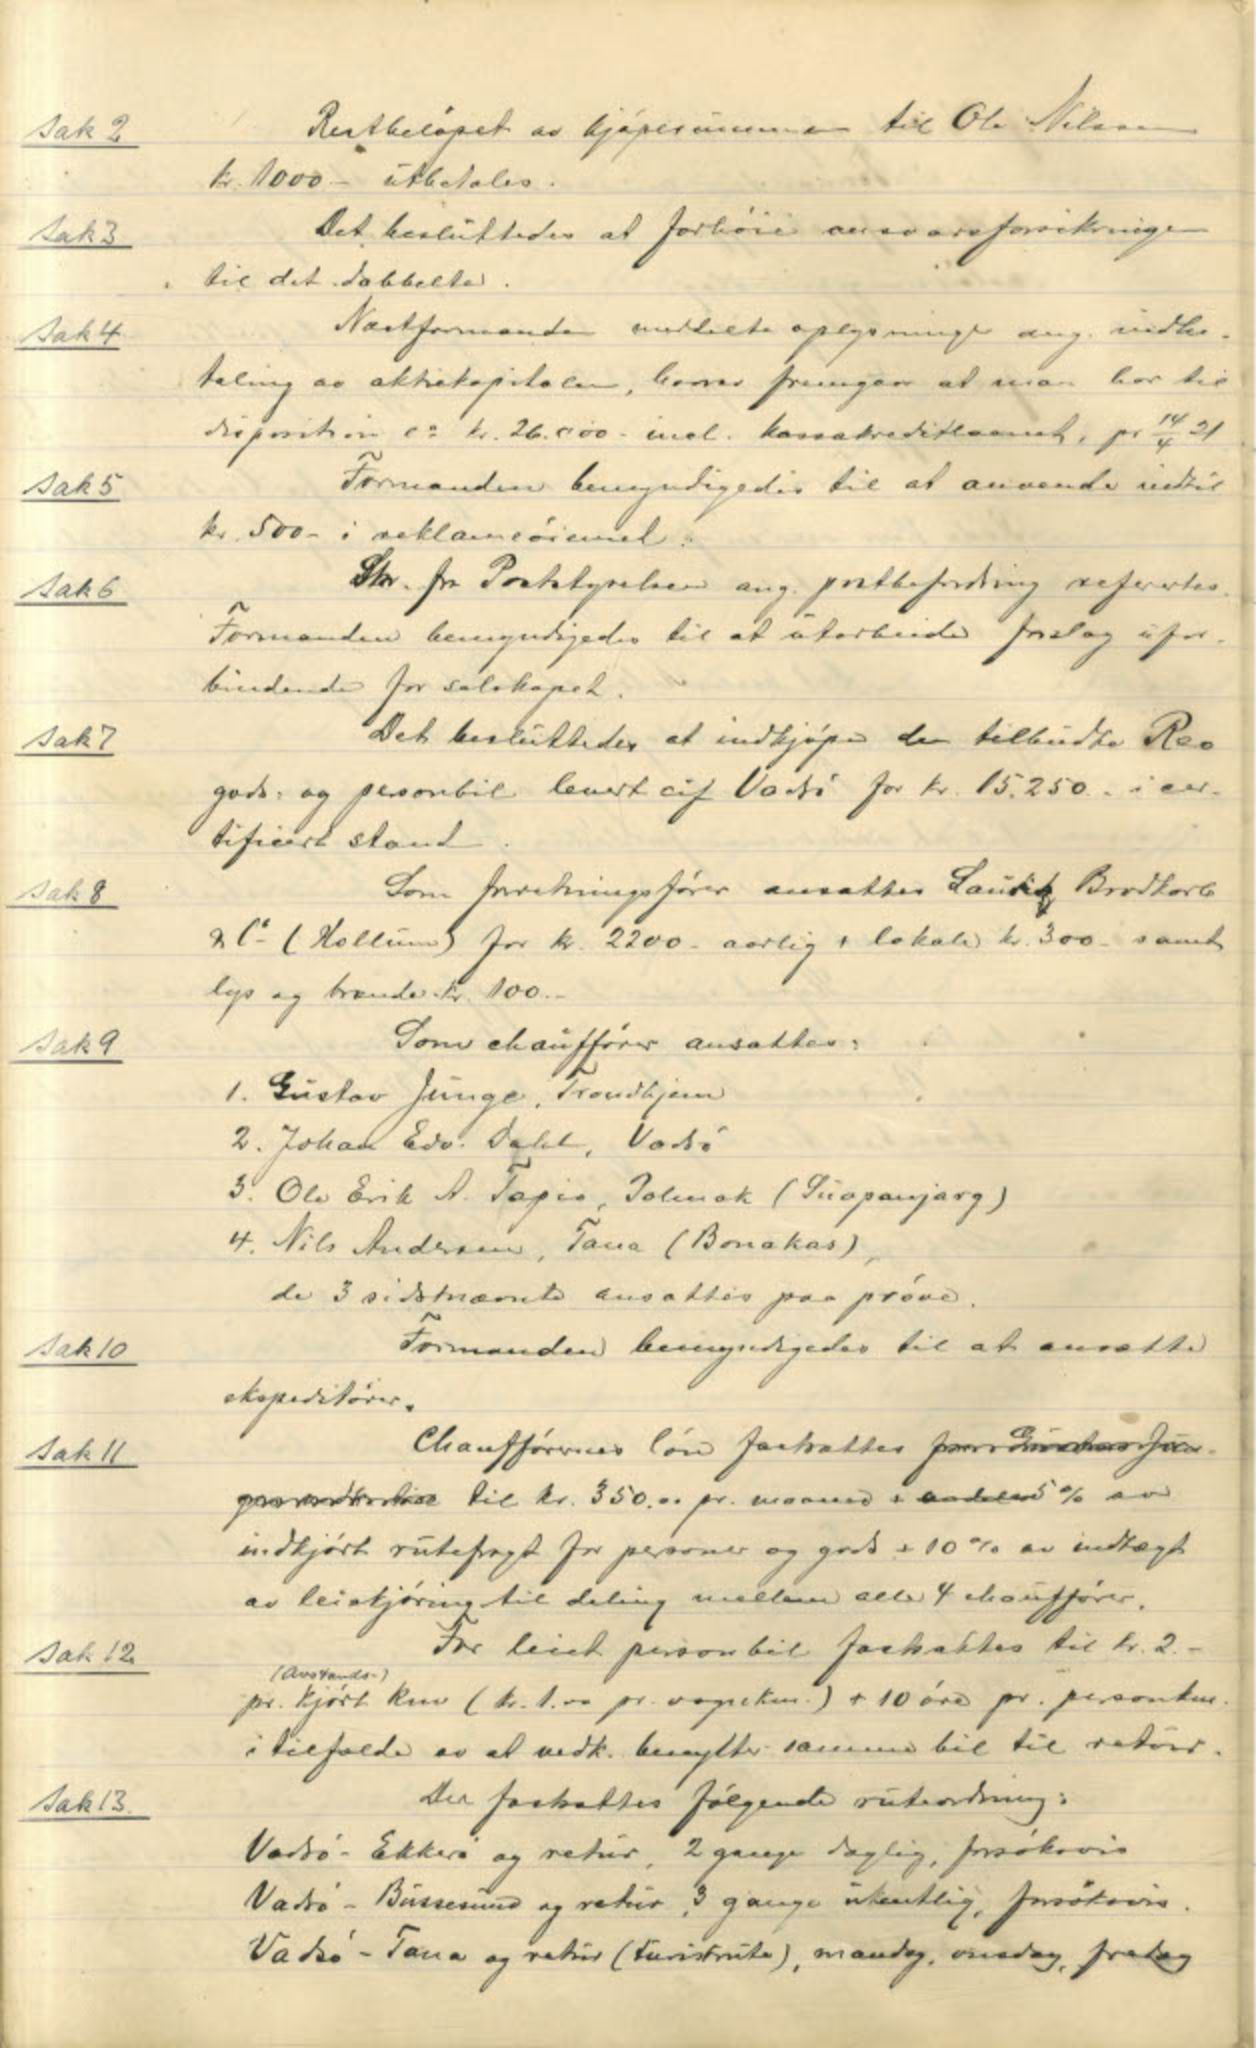 Sak 2 Restbeløpet av kjøpesummen til Ole Nilsen
kr. 1000 - utbetales.
Sak 3 Det besluttedes at forhöie ansvarsforsikringen
til det dobbelte.
Sak 4 Næstformanden meddelte oplysninger ang. indbe-
taling av aktiekapitalen, hvorav fremgaar at man har til
disposition ca kr. 26.000 - incl. kassakreditlaanet, pr 14/4 21
Sak 5 Formanden bemyndigedes til at anvende indtil
kr. 500 - i reklameöiemed.
Sak 6 Skr. fra Poststyrelsen ang. postbefordring refertes.
Formanden bemyndigedes til at utarbeide forslag ufor-
bindende for selskapet.
Sak 7 Det besluttedes at indkjøpe den tilbudte Reo
gods- og personbil levert cif Vadsö for kr. 15.250 - i cer-
tificert stand.
Sak 8 Som forretningsfører ansattes Lauritz Brodtkorb
& Co (Hollum) for kr. 2200 - aarlig + lokale kr. 300 - samt
lys og brænde kr. 100 -
Sak 9 Som chauffører ansattes:
1. Gustav Junge, Trondhjem
2. Johan Edv. Dahl, Vadsö
3. Ole Erik A. Tapio, Polmak (Suopanjarg)
4. Nils Andersen, Tana (Bonakas),
de 3 sidstnævnte ansattes paa prøve.
Sak 10 Formanden bemyndigedes til at ansætte
ekspeditører.
Sak 11 Chaufførernes lön fastsattes for Gustav Jun-
til kr. 350.00 pr. maaned + andelen 5 % av
indkjørt rutefragt for personer og gods + 10 % av indtægt
av leiekjøring til deling mellem alle 4 chauffører.
Sak 12 For leiet personbil fastsattes til kr. 2 -
(Avstands-)
pr. kjört km (kr. 1.00 pr. vognkm.) + 10 öre pr. personkm.
i tilfælde av at vedk. benytter samme bil til retur.
Sak 13 Der fastsattes følgende ruteordning:
Vadsö - Ekkerö og retur, 2 gange daglig, forsøksvis
Vadsö - Bussesund og retur, 3 gange ukentlig, forsøksvis.
Vadsö - Tana og retur (turistrute), mandag, onsdag, fredag